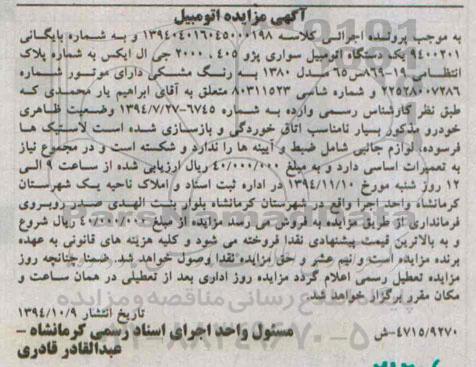 آگهی مزایده اتومبیل
به موجب پرونده اجرائی کلاسه ۱۳۹۴۰۴۰۱۶۰۴۵۰۰۰۱۹۸ و به شماره بایگانی
۹۴۰۰۲۰۱ یکدستگاه اتومبیل سواری پژو ۴۰۵ . ۲۰۰۰ جی ال ایکس به شماره پلاک
انتظامی ۱۹-۸۶۹س۶۵ مدل ۱۳۸۰ به رنگ مشکی دارای موتور شماره
۲۲۵۲۸۰۰۷۲۸۶ و شماره شاسی ۸۰۳۱۱۵۲۳ متعلق به آقای ابراهیم یار محمدی که
طبق نظر کارشناس رسمی وارده به شماره ۶۷۴۵-۱۳۹۴/۷/۲۷ وضعیت ظاهری
خودرو مذکور بسیار نامناسب اتاق خوردگی و بازسازی شده است لاستیک ها
فرسوده، لوازم جالبی شامل ضبط و آیینه ها را ندارد و شکسته است و در مجموع نیاز
به تعمیرات اساسی دارد و به مبلغ ۴۰/۰۰۰/۰۰۰ ریال ارزیابی شده از ساعت ۹ الی
۱۲ روز شنبه مورخ ۱۳۹۴/۱۱/۱۰ در اداره ثبت اسناد و املاک ناحیه یک شهرستان
کرمانشاه واحد اجرا واقع در شهرستان کرمانشاه بلوار بنت الهدی صدر روبروی
فرمانداری از طریق مزایده به فروش می رسد مزایده از مبلغ ۴۰/۰۰۰/۰۰۰ ریال شروع
و به بالاترین قیمت پیشنهادی نقدا فروخته می شود و کلیه هزینه های قانونی به عهده
برنده مزایده است و نیم عشر و حق مزایده نقدا وصول خواهد شد. ضمنا چنانچه روز
مزایده تعطیل رسمی اعلام گردد مزایده روز اداری بعد از تعطیلی در همان ساعت و
مکان مقرر برگزار خواهد شد.
تاریخ انتشار ۱۳۹۴/۱۰/۹
۴۷۱۵/۹۲۷۰-ش
مسئول واحد اجرای اسناد رسمی کرمانشاه –
عبدالقادر قادری